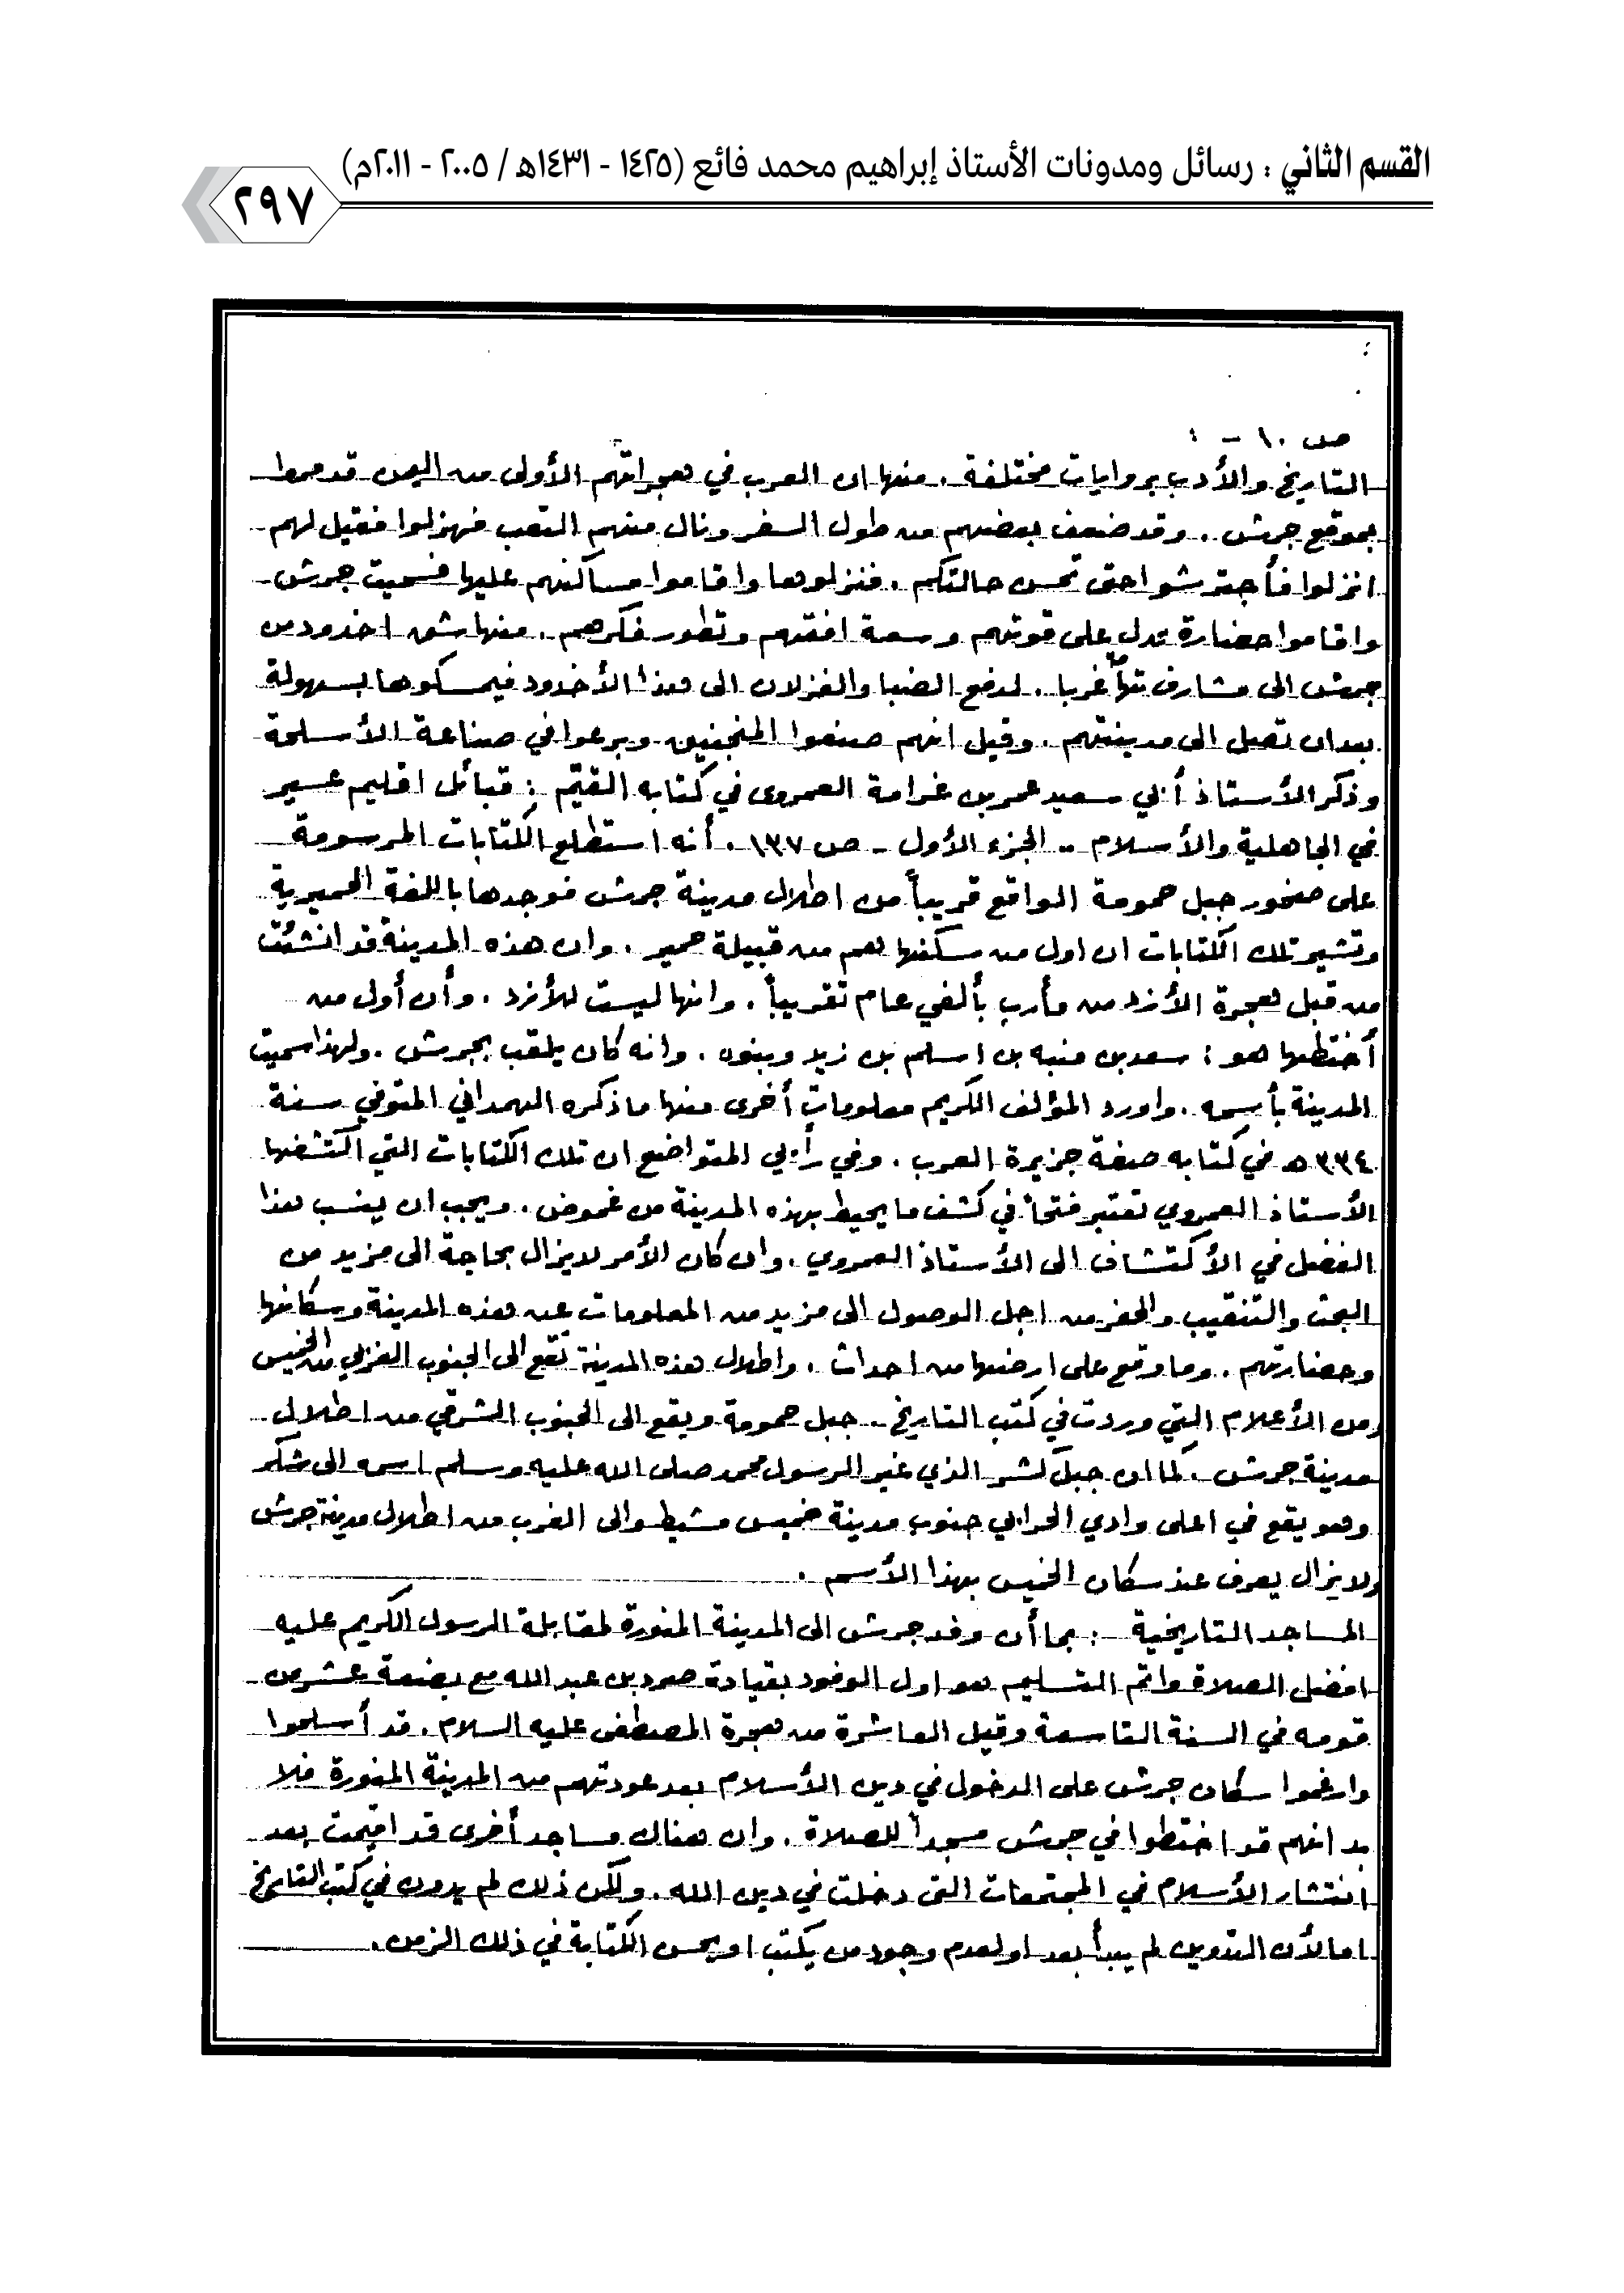 القسم الثاني : رسائل ومدونات الأستاذ إبراهيم محمد فائع (١٤٢٥ - ١٤٣١هـ / ٢٠٠٥ - ٢٠١١م)
٢٩٧
ص ١٠ -
التاريخ والأدب بروايات مختلفة . منها ان العرب في هجراتهم الأولى من اليمن قد مروا
بموقع جرش . وقد ضعف بعضهم من طول السفر ونال منهم التعب فهزلوا فقيل لهم
انزلوا فأجترشوا حتى تحسن حالتكم . فنزلوها واقاموا مساكنهم عليها فسميت جرش
واقاموا حضارة تدل على قوتهم وسعة افقهم وتطور فكرهم . منها شق اخدود من
جرش الى مشارف تهامة غربا . لدفع الضبا والغزلان الى هذا الأخدود فيمسكوها بسهولة
بعد ان تصل الى مدينتهم . وقيل انهم صنعوا المنجنيق وبرعوا في صناعة الأسلحة
وذكر الأستاذ أبي سعيد عمر بن غرامة العمروي في كتابه القيّم : قبائل اقليم عسير
في الجاهلية والأسلام .. الجزء الأول - ص ١٣٧ . أنه استطلع الكتابات المرسومة
على صخور جبل حمومة الواقع قريباً من اطلال مدينة جرش فوجدها باللغة الحميرية
وتشير تلك الكتابات ان اول من سكنها هم من قبيلة حمير . وان هذه المدينة قد انشئت
من قبل هجرة الأزد من مأرب بألفي عام تقريباً . وانها ليست للأزد . وأن أول من
أختطها هو : سعد بن منبه بن اسلم بن زيد وبنوه . وانه كان يلقب بجرش . ولهذا سميت
المدينة بأسمه . واورد المؤلف الكريم معلومات أخرى منها ما ذكره الهمداني المتوفي سنة
٣٣٤ هـ في كتابه صفة جزيرة العرب . وفي رأيي المتواضع ان تلك الكتابات التي اكتشفها
الأستاذ العمروي تعتبر فتحاً في كشف ما يحيط بهذه المدينة من غموض . ويجب ان ينسب هذا
الفضل في الأكتشاف الى الأستاذ العمروي . وان كان الأمر لايزال بحاجة الى مزيد من
البحث والتنقيب والحفر من اجل الوصول الى مزيد من المعلومات عن هذه المدينة وسكانها
وحضارتهم . وما وقع على ارضها من احداث . واطلال هذه المدينة تقع الى الجنوب الغربي من الخميس
ومن الأعلام التي وردت في كتب التاريخ .. جبل حمومة ويقع الى الجنوب الشرقي من اطلال
مدينة جرش . كما ان جبل كشر الذي غير الرسول محمد صلى الله عليه وسلم اسمه الى شكر
وهو يقع في اعلى وادي الحرابي جنوب مدينة خميس مشيط والى الغرب من اطلال مدينة جرش
ولايزال يعرف عند سكان الخميس بهذا الأسم .
المساجد التاريخية : بما أن وفد جرش الى المدينة المنورة لمقابلة الرسول الكريم عليه
افضل الصلاة واتم التسليم هو اول الوفود بقيادة صرد بن عبد الله مع بضعة عشر من
قومه في السنة التاسعة وقيل العاشرة من هجرة المصطفى عليه السلام . قد أسلموا
وارغموا سكان جرش على الدخول في دين الأسلام بعد عودتهم من المدينة المنورة فلا
بد انهم قد اختطوا في جرش مسجداً للصلاة . وان هناك مساجد أخرى قد اقيمت بعد
انتشار الأسلام في المجتمعات التى دخلت في دين الله . ولكن ذلك لم يدون في كتب التاريخ
اما لأن التدوين لم يبدأ بعد او لعدم وجود من يكتب او يحسن الكتابة في ذلك الزمن .